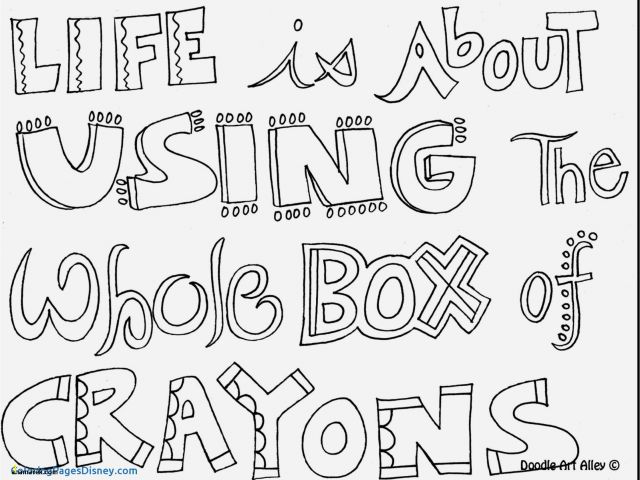 LIFE is ABOUT
USING The
Whole BOX of
CRAYONS
Doodle Art Alley ©